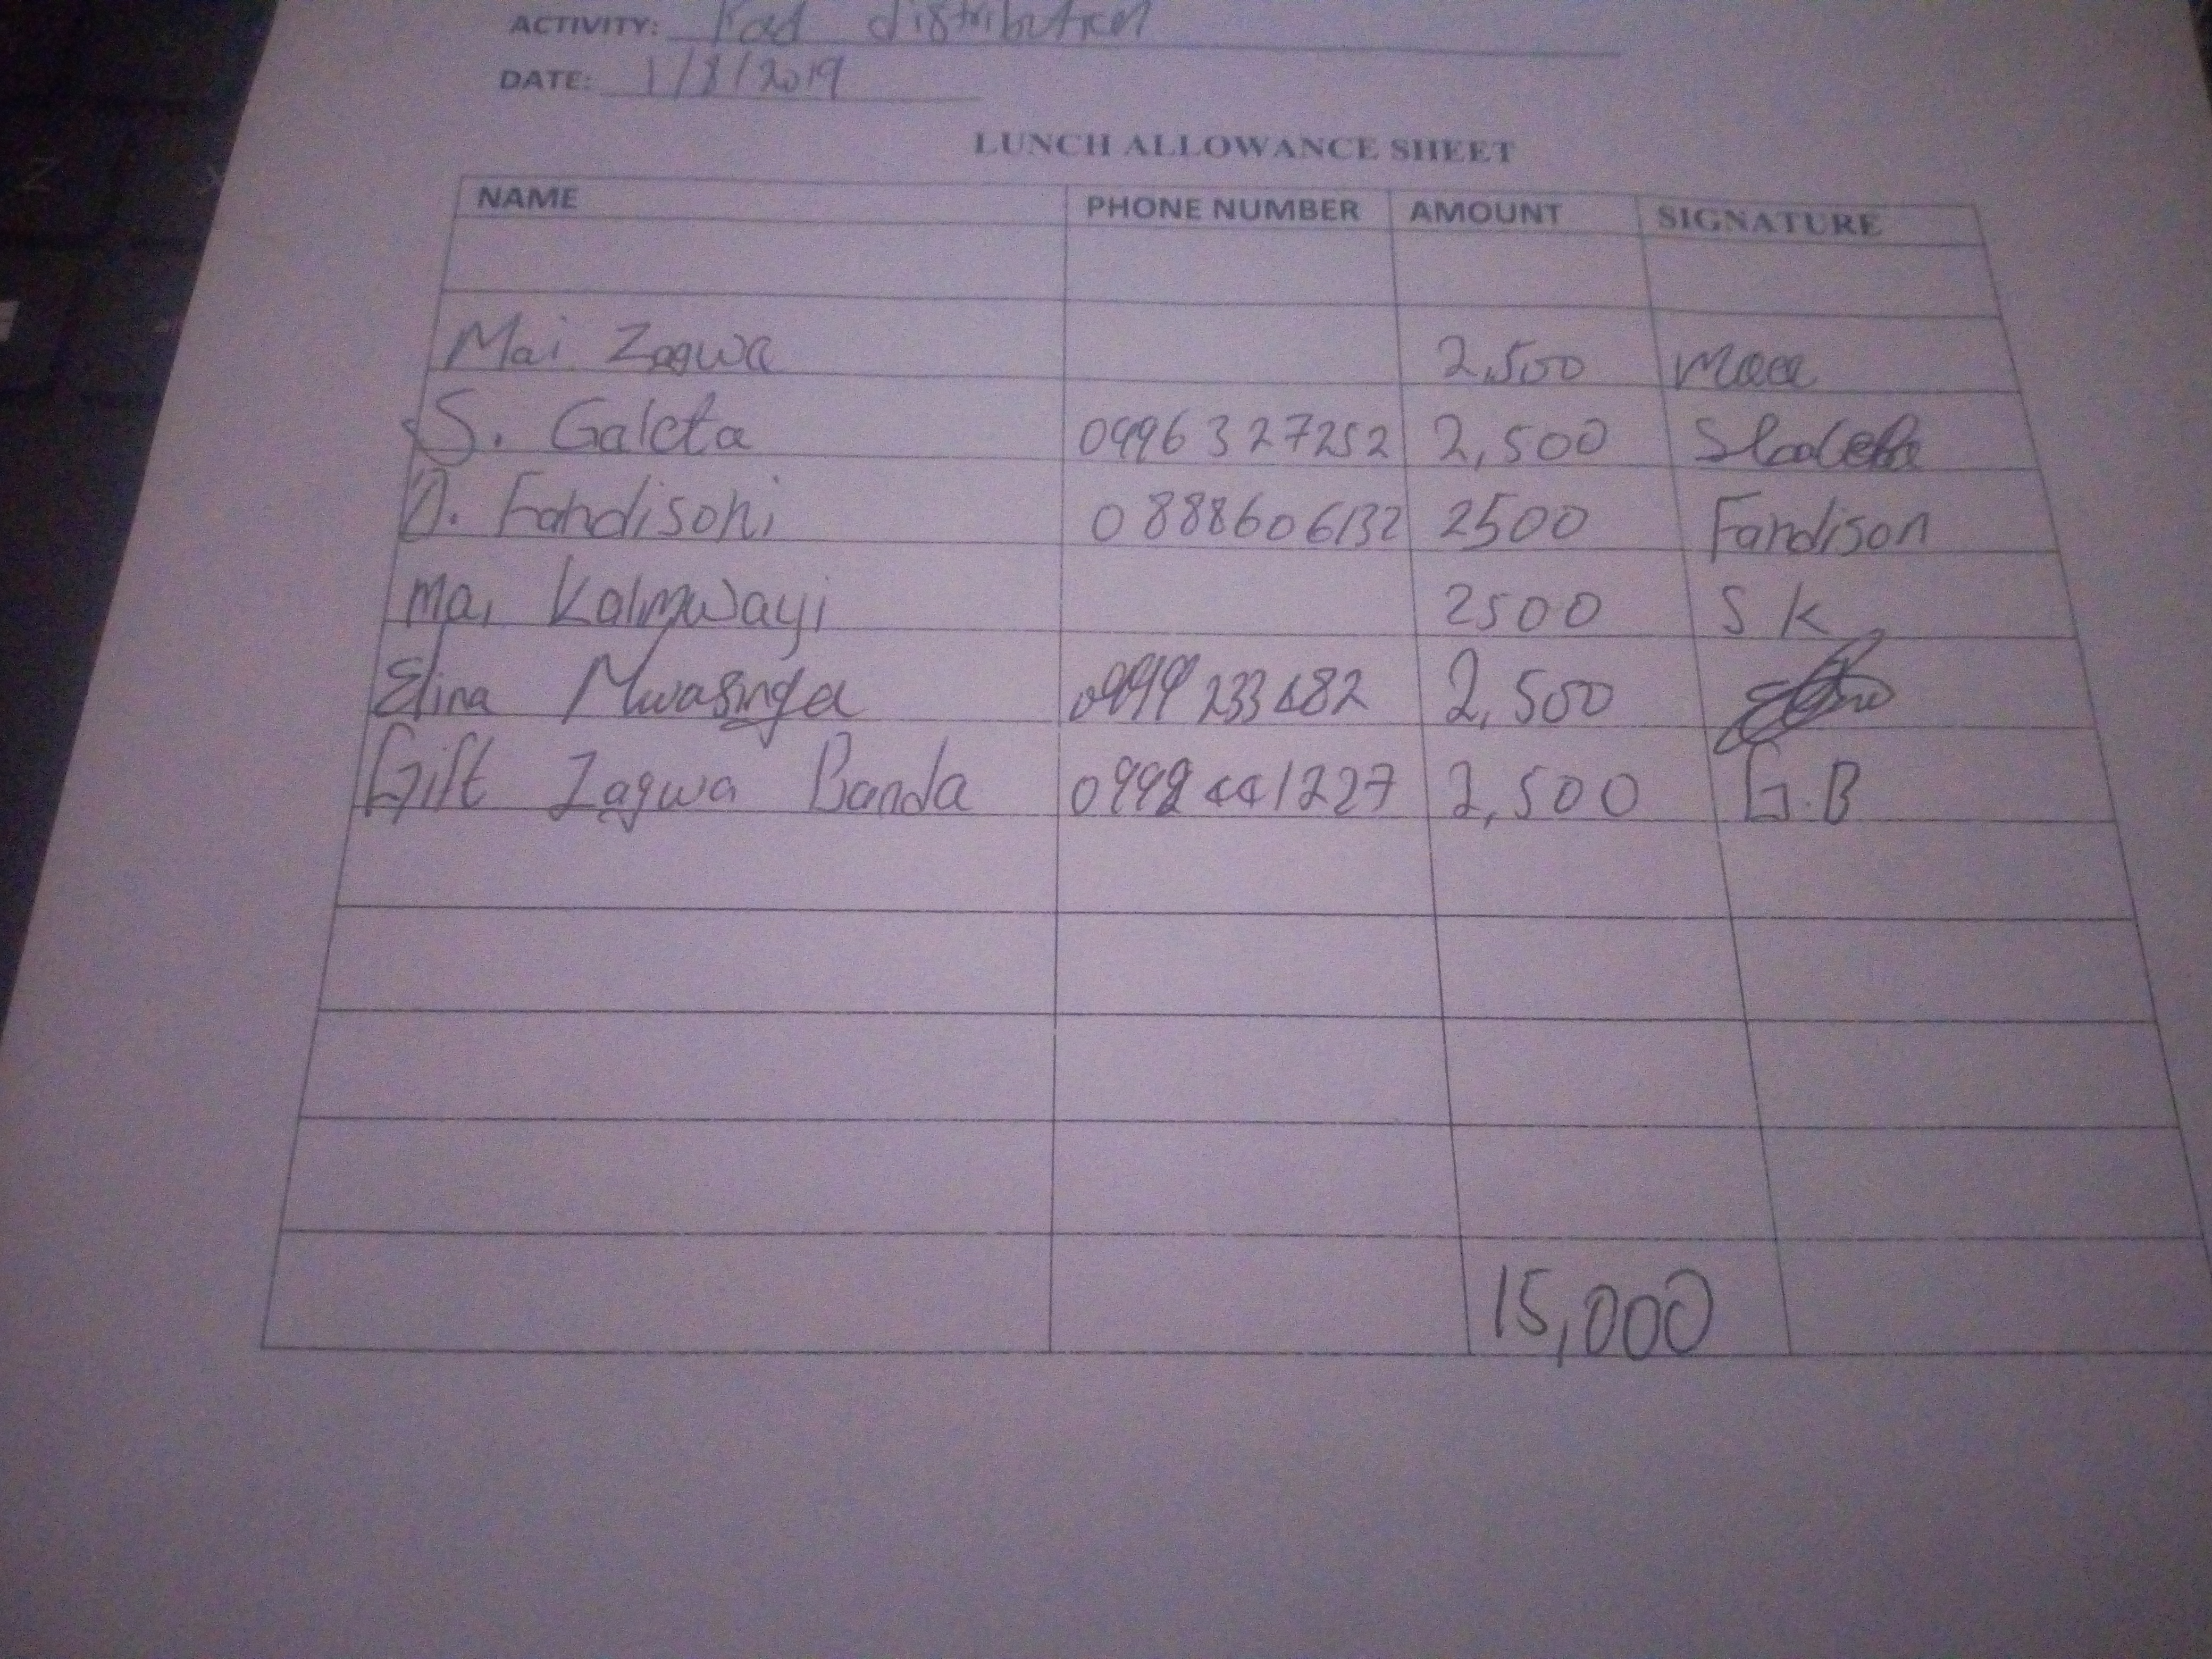 ACTIVITY: Pad distribution
DATE: 1/8/2019
LUNCH ALLOWANCE SHEET
NAME PHONE NUMBER AMOUNT SIGNATURE
Mai Zagwa 2,500
S. Galeta 0996327252 2,500
D. Fandisoni 0888606132 2500 Fandison
Mai Kalmwayi 2500 S K
Elina Mwasinga 2,500
Gift Zagwa Banda 0992441227 2,500 G.B
15,000